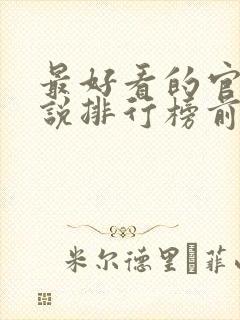 最好看的官
說排行榜前
米尔德里 菲